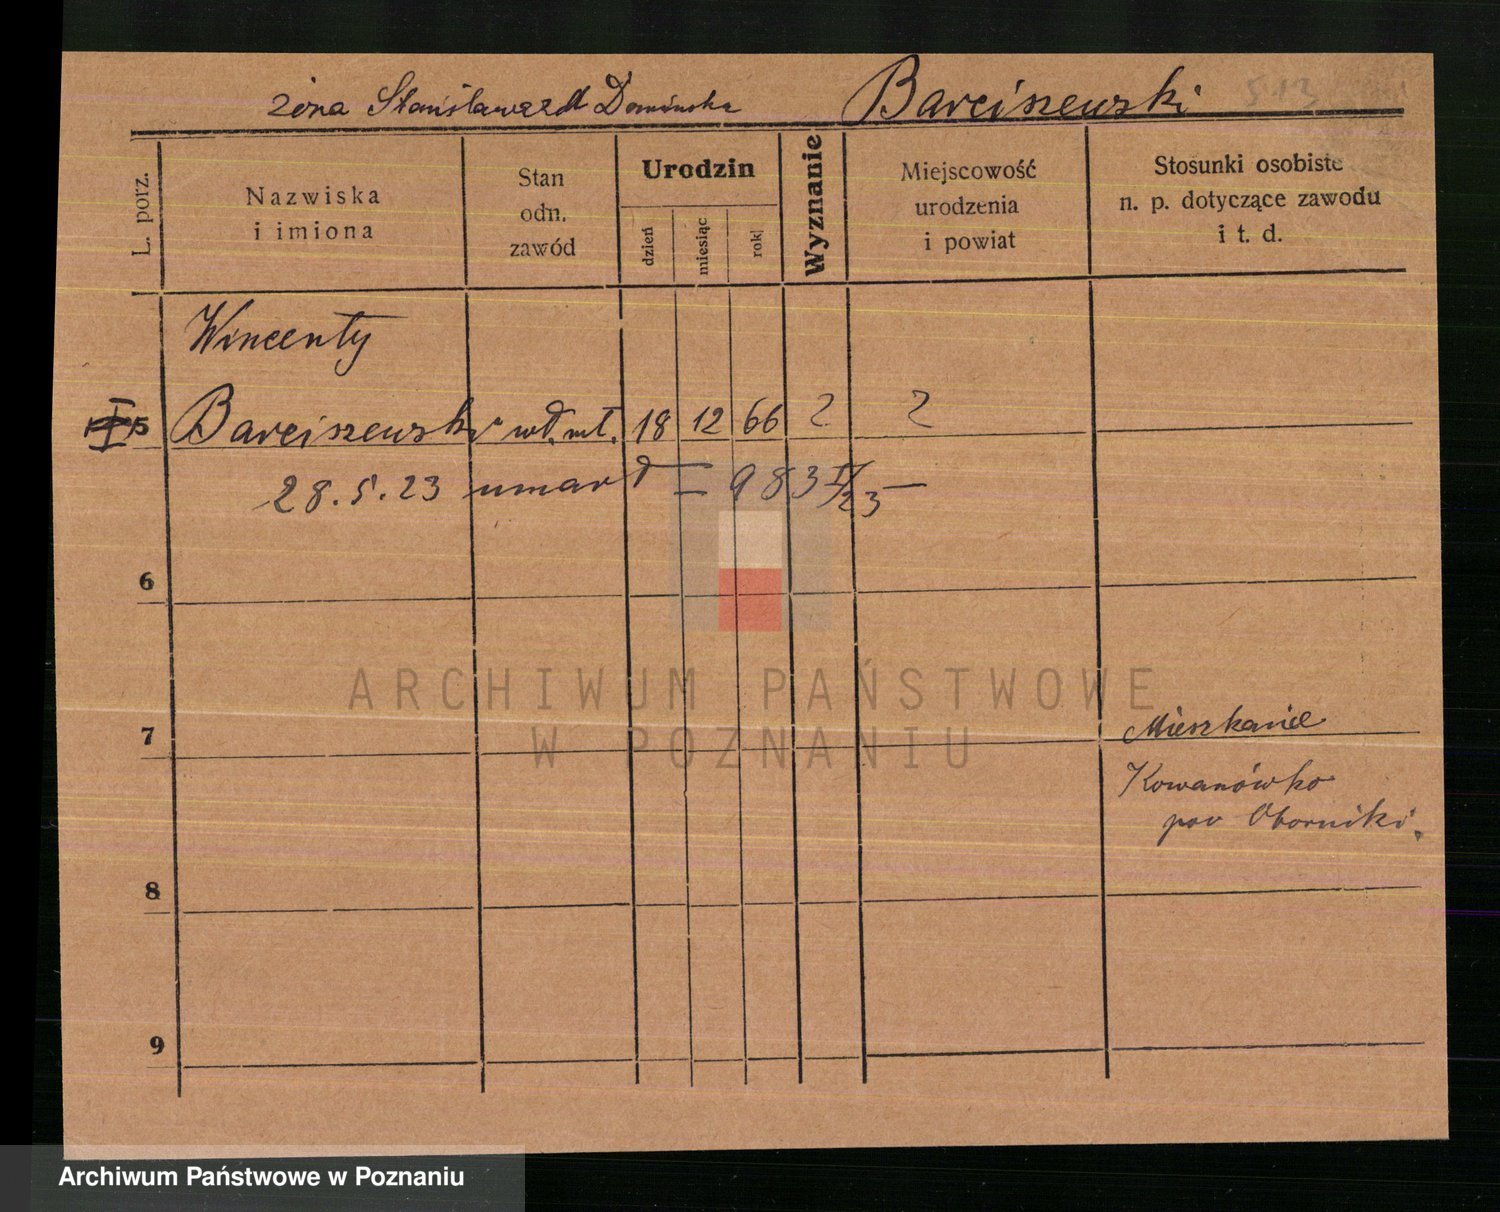 żona Stanisława zd Domińska Barciszewski 513
L. porz.
Nazwiska i imiona
Stan odn. zawód
Urodzin
dzień miesiąc rok
Wyznanie
Miejscowość urodzenia i powiat
Stosunki osobiste n. p. dotyczące zawodu i t. d.
Wincenty
I 5 Barciszewski wł. mł. 18 12 66 ? ?
28.5.23 umarł = 983 II/23 —
6
ARCHIWUM PAŃSTWOWE
W POZNANIU
7 Mieszkanie
Kowanówko
pow Oborniki.
8
9
Archiwum Państwowe w Poznaniu